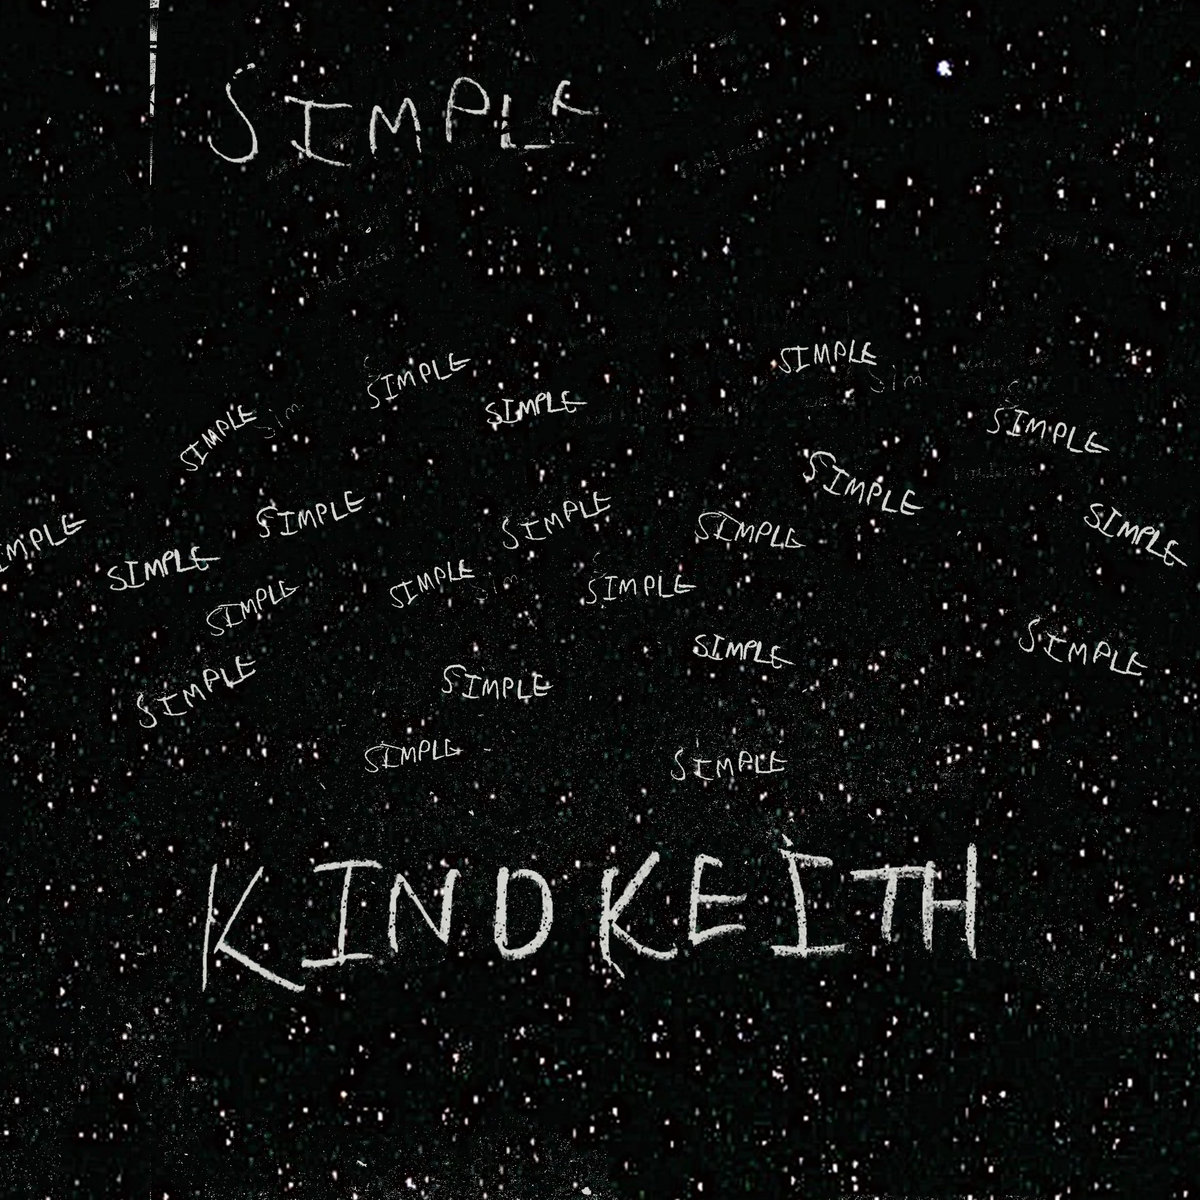 SIMPLE
SIMPLE
SIMPLE
SIMPLE
sim
SIMPLE
SIMPLE
sim
SIMPLE
SIMPLE
IMPLE
SIMPLE
SIMPLE
SIMPLE
SIMPLE
SIMPLE
SIMPLE
SIMPLE
sim
SIMPLE
SIMPLE
SIMPLE
SIMPLE
SIMPLE
SIMPLE
SIMPLE
KINDKEITH